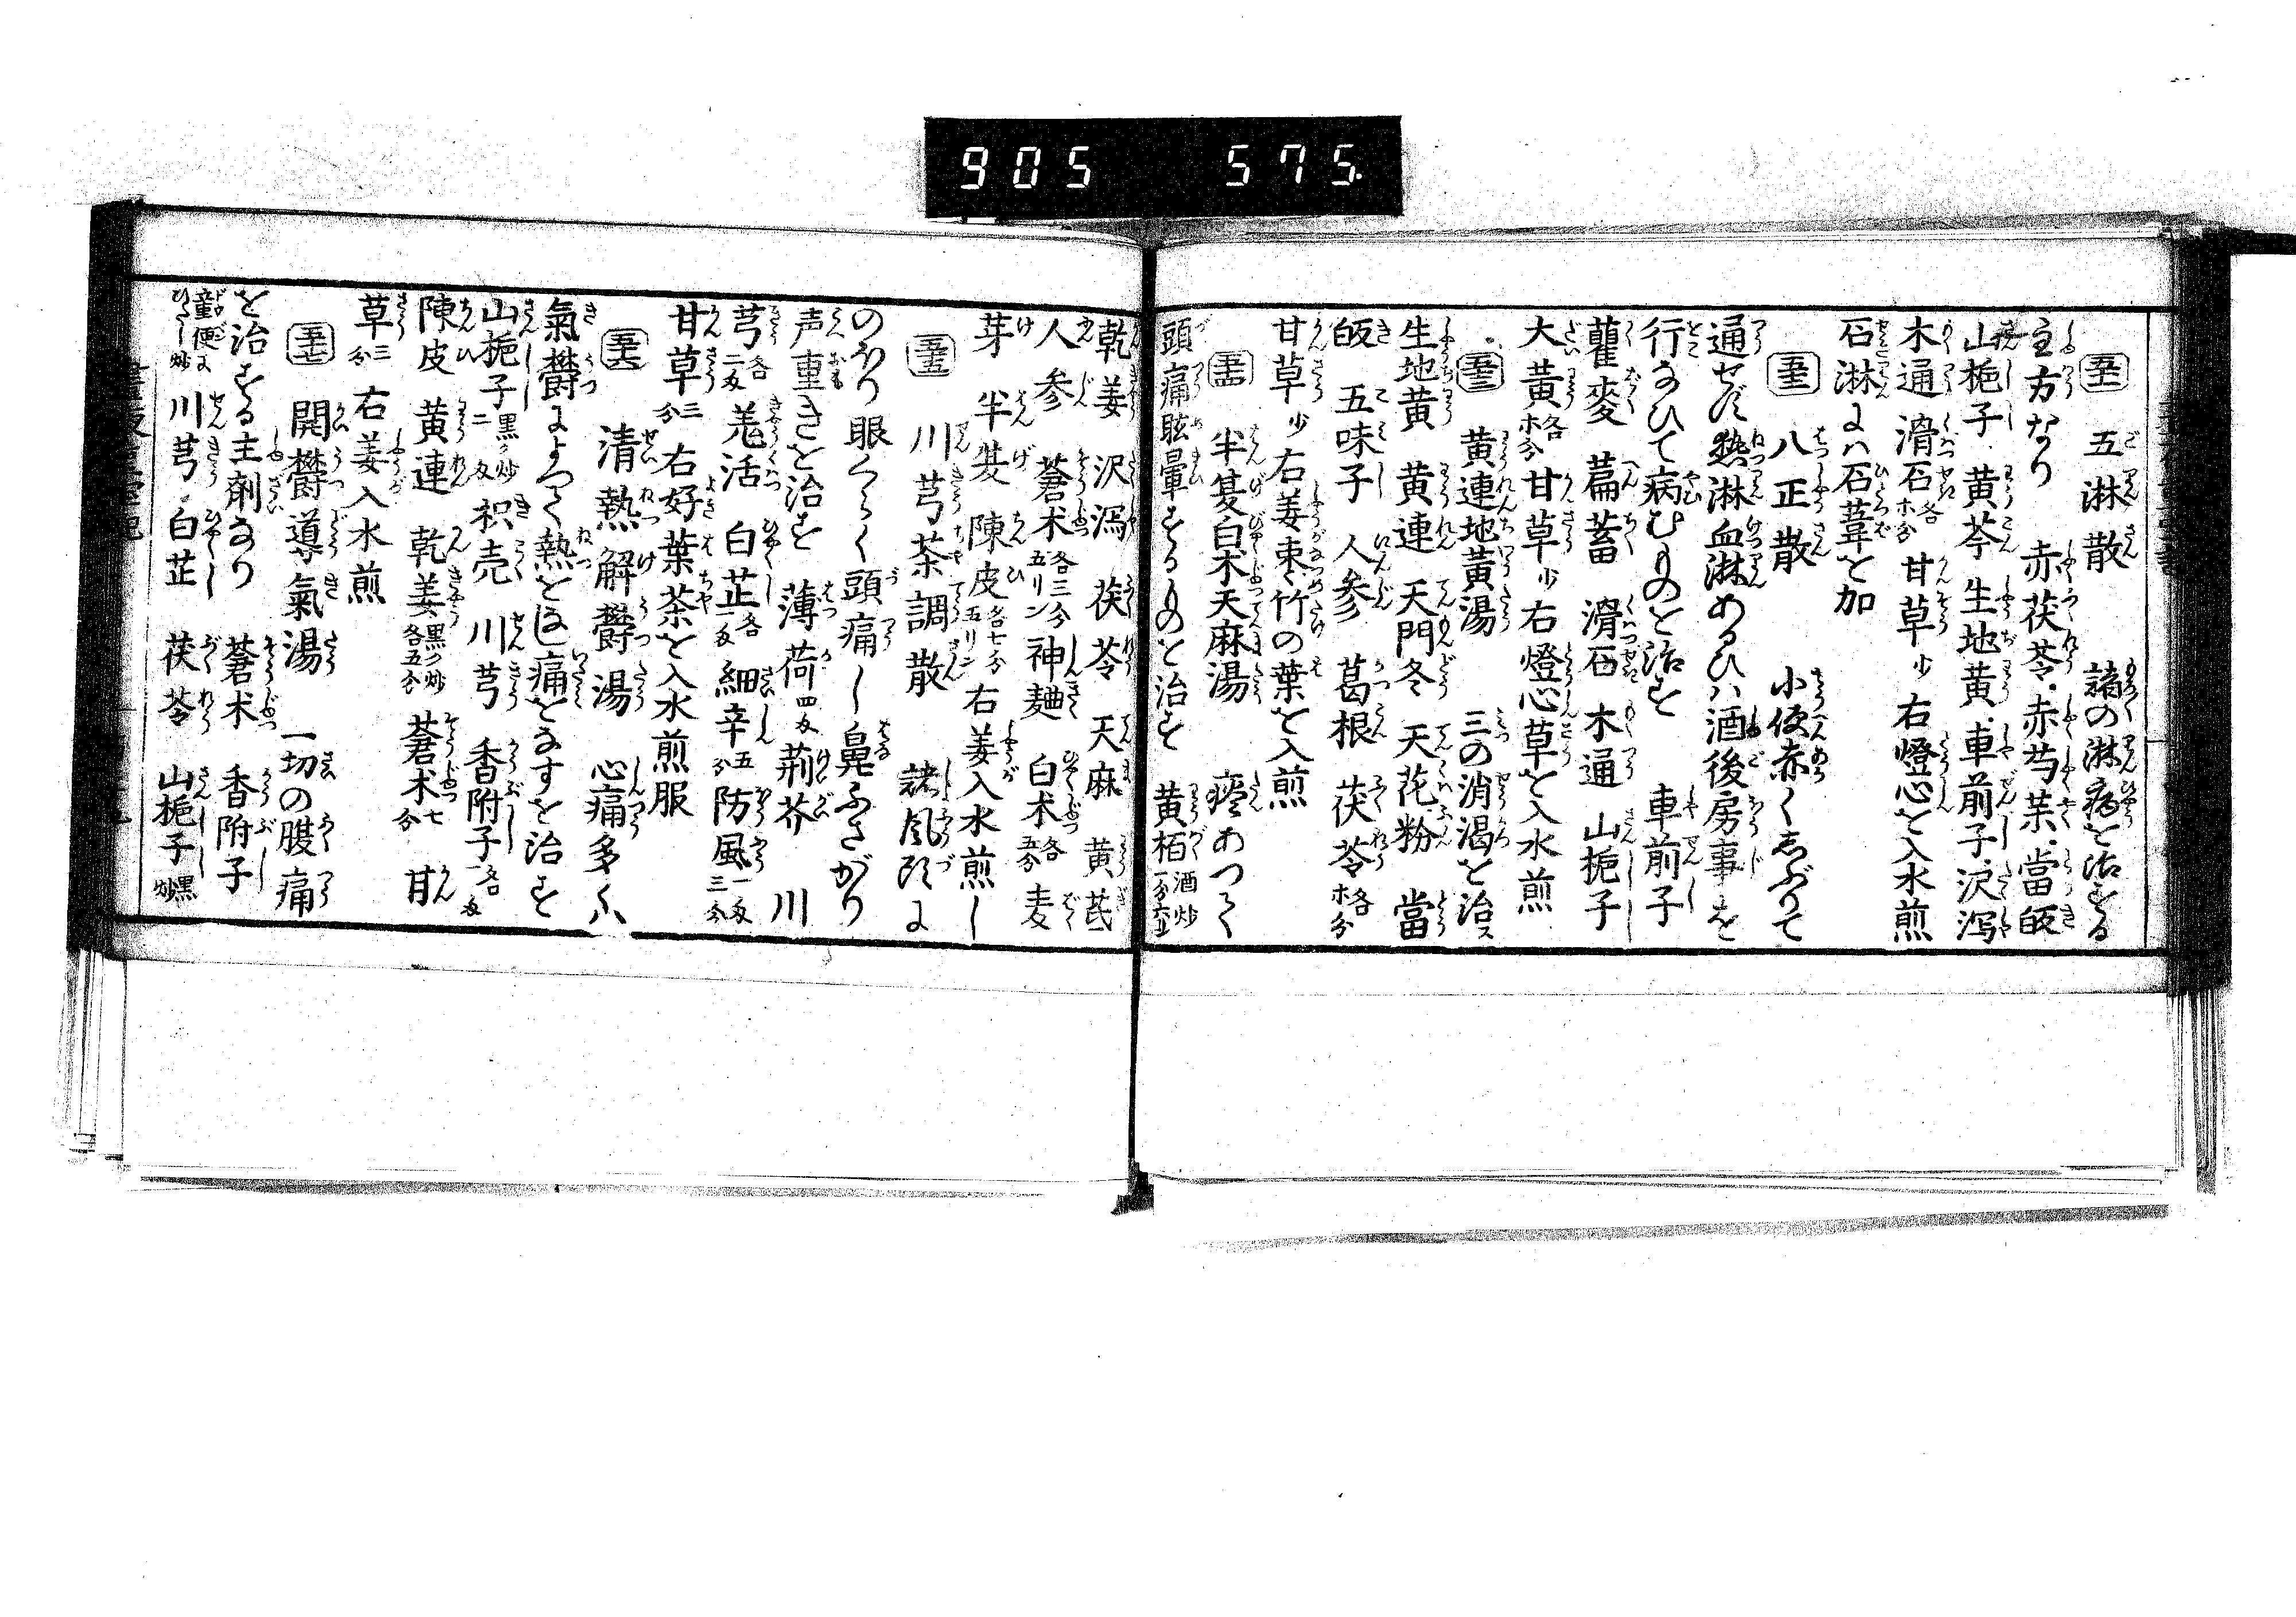 905 575.
五淋散 諸の淋病を治する
主方なり 赤茯苓・赤芍薬・當皈
山梔子・黄芩・生地黄・車前子・沢瀉
木通 滑石 各ホ分 甘草 少 右燈心を入水煎
石淋には石葦を加
八正散 小便赤くしぶりて
通せず熱淋血淋あるひは酒後房事を
行なひて病むものを治す 車前子
瞿麥 萹蓄 滑石 木通 山梔子
大黄 各ホ分 甘草 少 右燈心草を入水煎
黄連地黄湯 三の消渇を治ス
生地黄 黄連 天門冬 天花粉 當
皈 五味子 人參 葛根 茯苓 各ホ分
甘草 少 右姜棗竹の葉を入煎
半夏白术天麻湯 痰あつく
頭痛眩暈するものを治す 黄栢 酒炒
乾姜 沢瀉 茯苓 天麻 黄芪
人参 蒼术 各三分五リン 神麯 白术 各五分 麦
芽 半夏 陳皮 各七分五リン 右姜入水煎し
川芎茶調散 諸風に
のぼり眼くらく頭痛し鼻ふさがり
声重きを治す 薄荷 四匁 荊芥 川
芎 各二匁 羗活 白芷 各一匁 細辛 五分 防風 一匁三分
甘草 三分 右好葉茶を入水煎服
清熱解欝湯 心痛多くハ
氣欝によつて熱を痛をなすを治す
山梔子 黒ク炒二匁 枳売 川芎 香附子 各一匁
陳皮 黄連 乾姜 黒ク炒各五分 蒼术 七分 甘
草 三分 右姜入水煎
開欝導氣湯 一切の腹痛
を治する主剤なり 蒼术 香附子
童便にひたし炒 川芎・白芷 茯苓 山梔子 黒炒